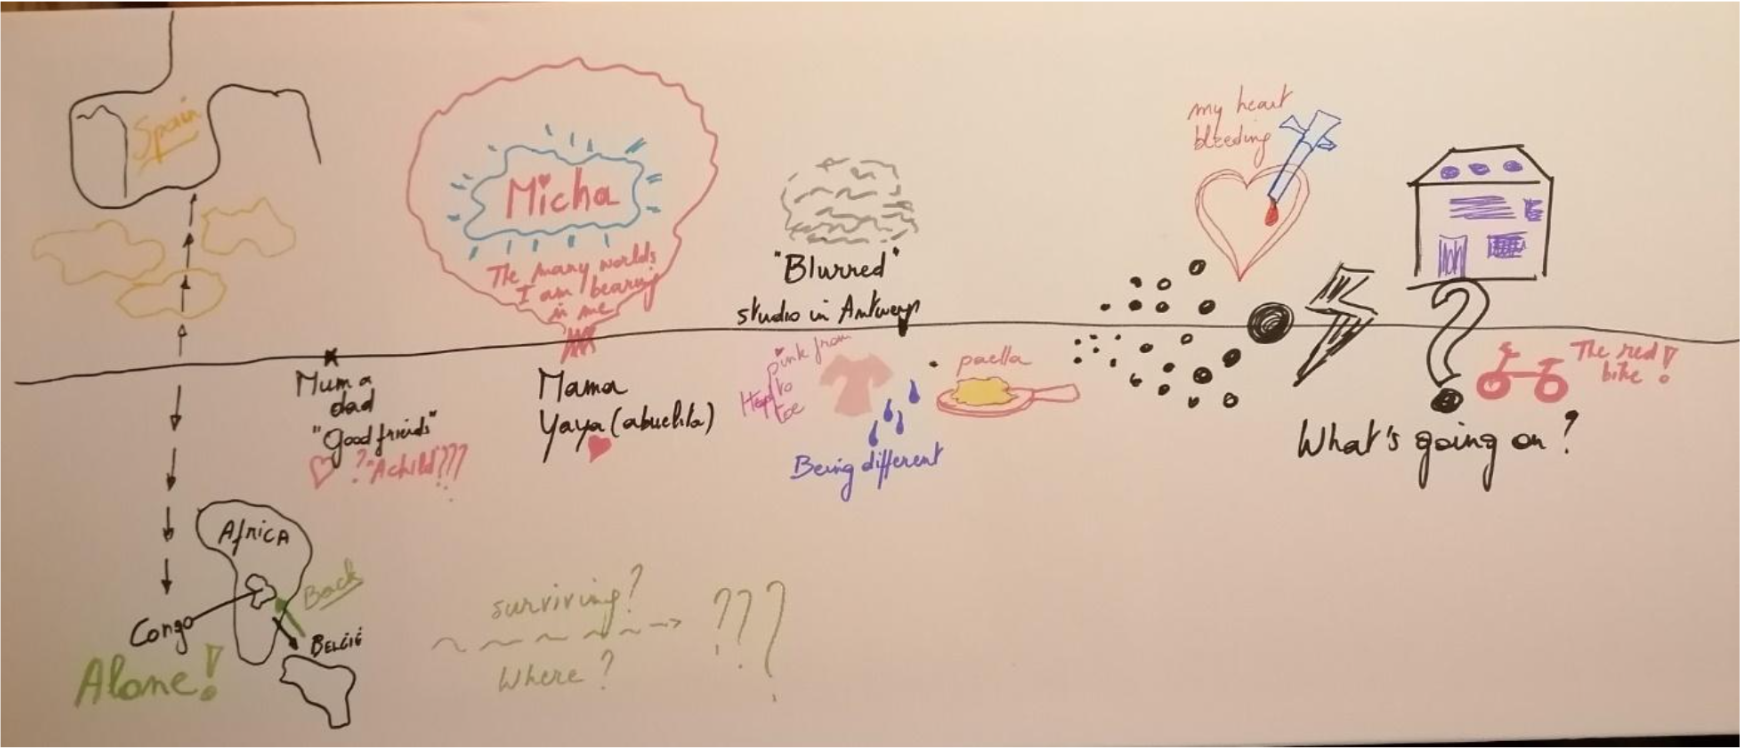 Spain
Micha
The many worlds
I am bearing
in me
"Blurred"
studio in Antwerp
my heart
bleeding
Mum &
dad
"Good friends"
? "A child"???
Mama
Yaya (abuelita)
pink from
to
toe
paella
Being different
What's going on?
The red
bike !
AfricA
Congo
Back
BELGIË
Alone!
surviving?
Where?
???